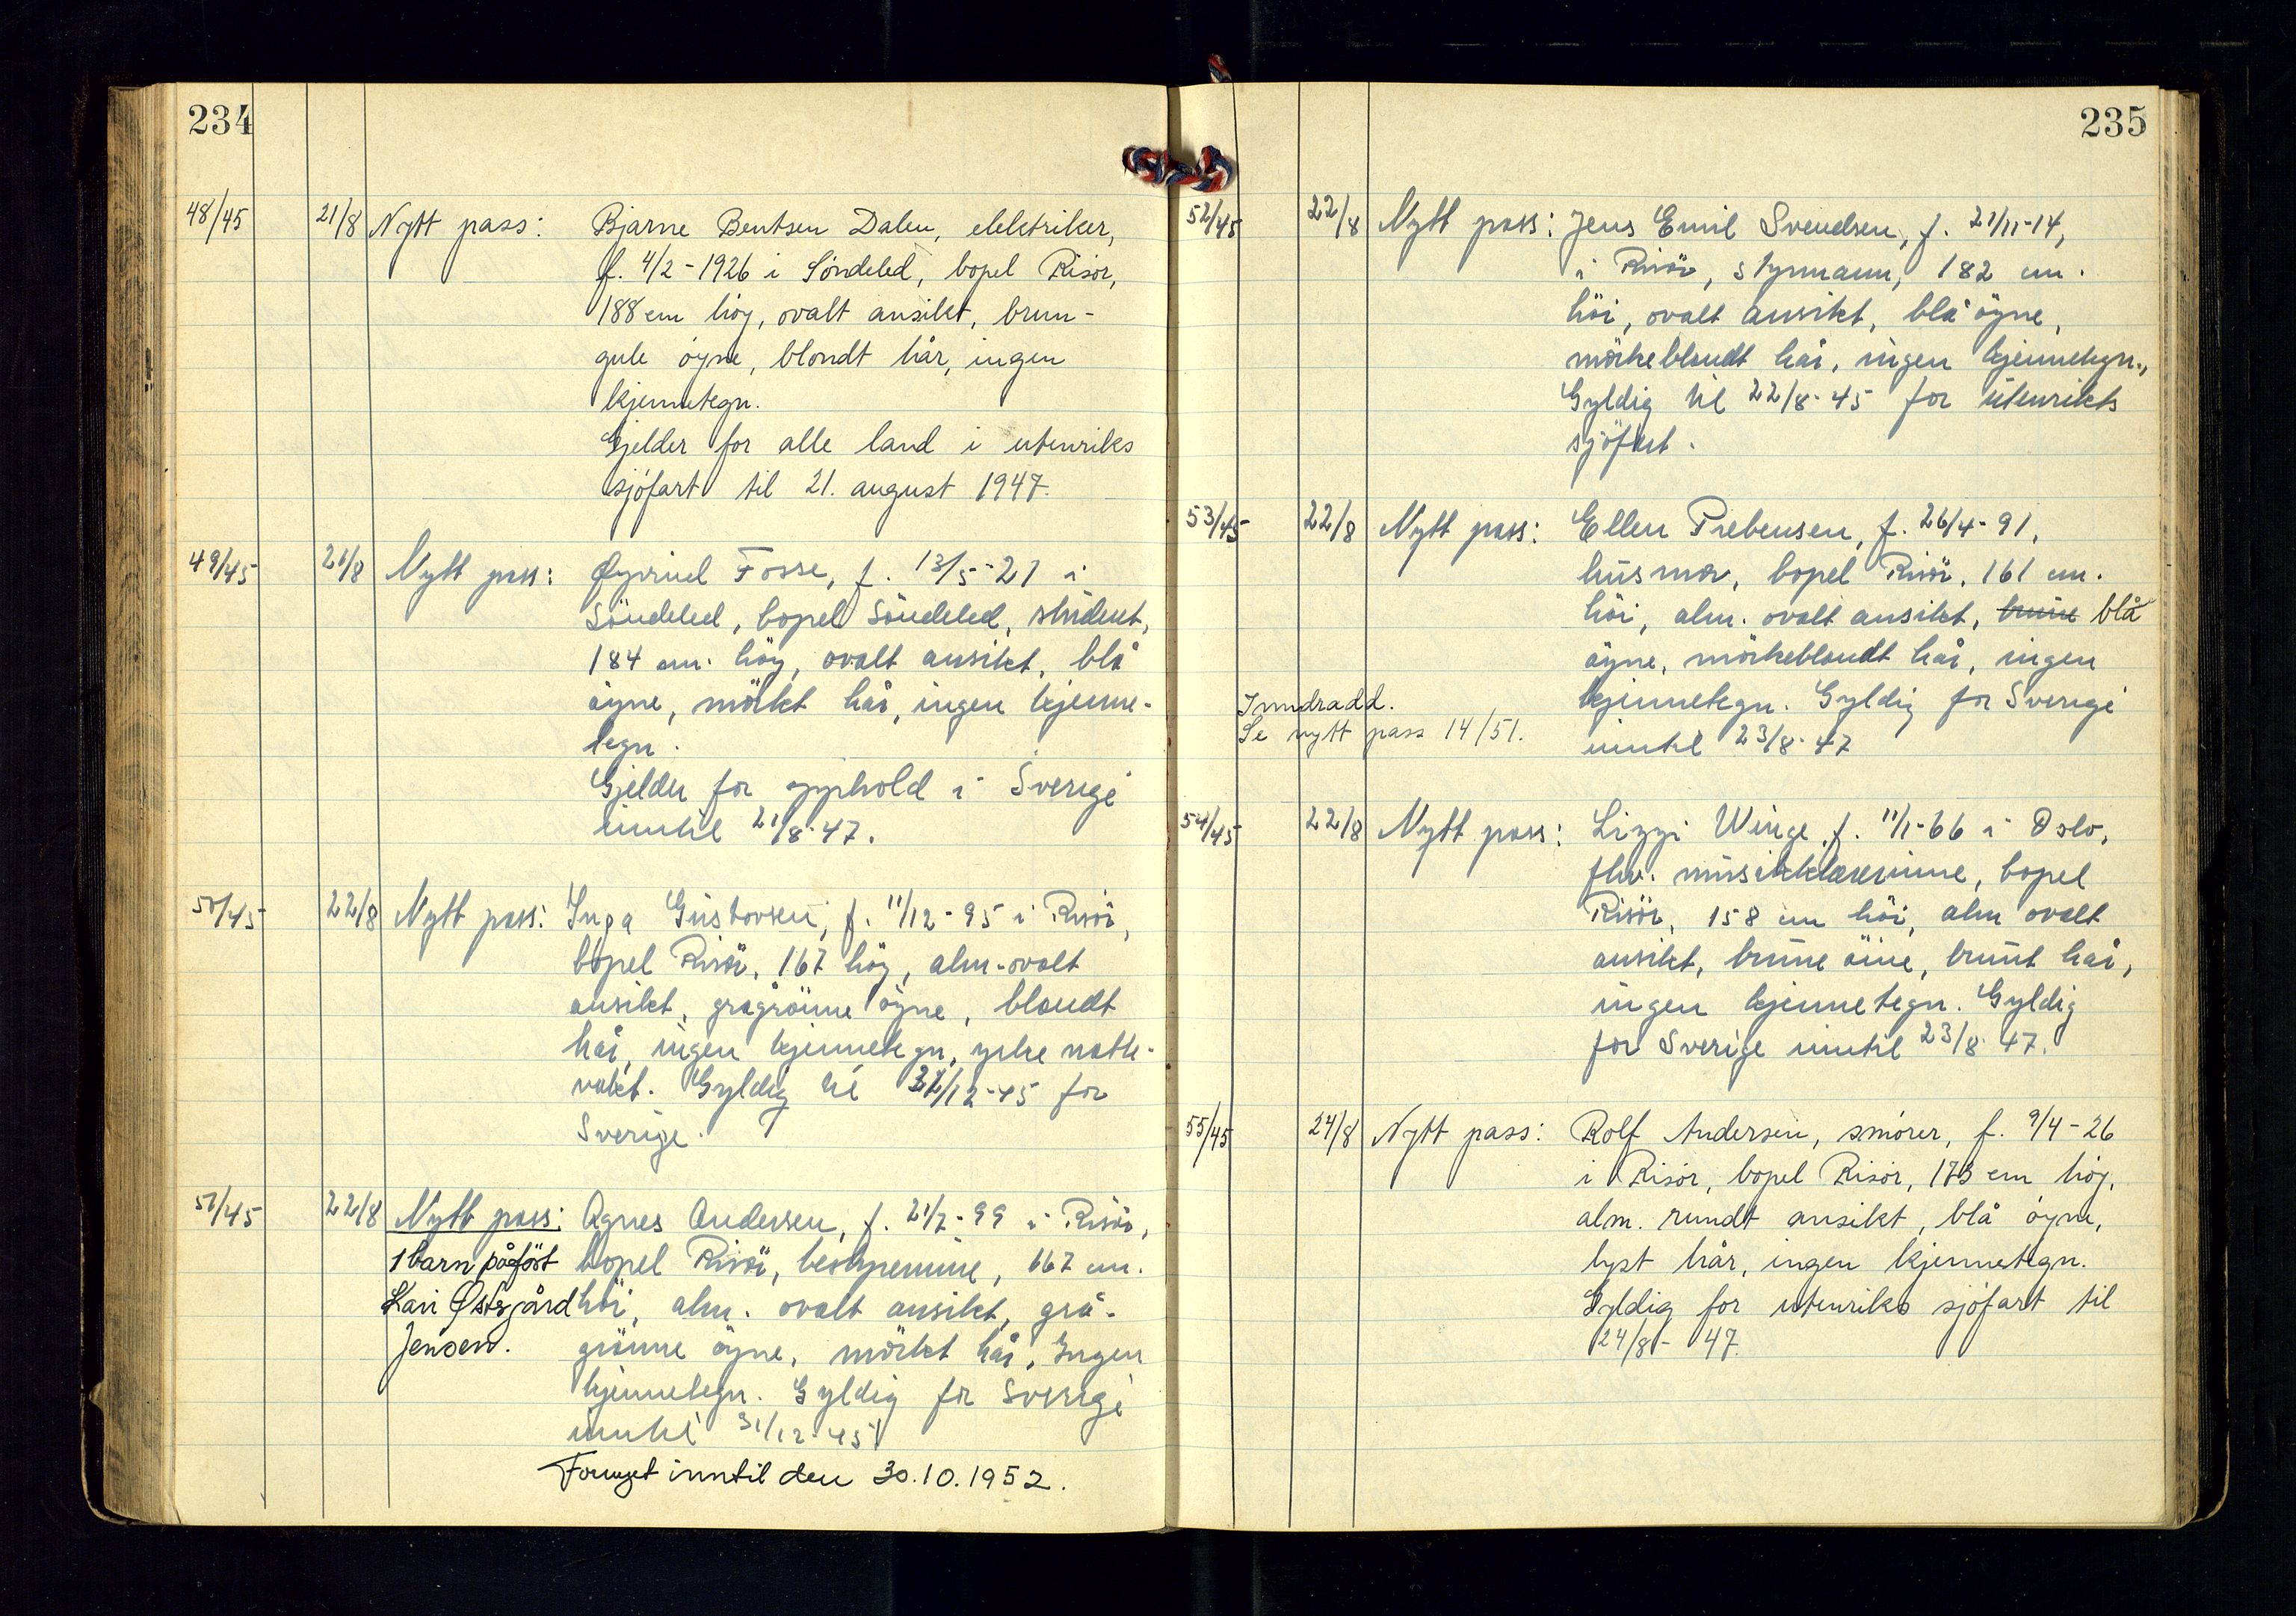 234
48/45 21/8 Nytt pass: Bjarne Bentsen Dalen, elektriker,
f. 4/2-1926 i Söndeled, bopel Risör,
188 cm høy, ovalt ansikt, brun-
gule öyne, blondt hår, ingen
kjennetegn.
Gjelder for alle land i utenriks
sjöfart til 21. august 1947.
49/45 21/8 Nytt pass: Øyvind Fosse, f. 13/5-27 i
Söndeled, bopel Söndeled, student,
184 cm. höy, ovalt ansikt, blå
öyne, mörkt hår, ingen kjenne-
tegn.
Gjelder for opphold i Sverige
inntil 21/8-47.
50/45 22/8 Nytt pass: Inga Gustavsen, f. 11/12-95 i Risör,
bopel Risör, 167 höy, alm. ovalt
ansikt, grågrönne öyne, blondt
hår, ingen kjennetegn, yrke natte-
vakt. Gyldig til 31/12-45 for
Sverige.
51/45 22/8 Nytt pass: Agnes Andersen, f. 21/7-99 i Risör,
1 barn påfört bopel Risör, bestyrerinne, 167 cm.
Kari Østegård höi, alm. ovalt ansikt, grå-
Jensen. grönne öyne, mörkt hår, Ingen
kjennetegn. Gyldig for Sverige
inntil 31/12-45
Fornyet inntil den 30.10.1952.
235
52/45 22/8 Nytt pass: Jens Emil Svendsen, f. 21/11-14,
i Risör, styrmann, 182 cm.
höi, ovalt ansikt, blå öyne,
mörkeblondt hår, ingen kjennetegn.,
Gyldig til 22/8-45 for utenriks
sjöfart.
53/45 22/8 Nytt pass: Ellen Prebensen, f. 26/4-91,
husmor, bopel Risör, 161 cm.
höi, alm. ovalt ansikt, brune blå
öyne, mörkeblondt hår, ingen
Inndradd. kjennetegn. Gyldig for Sverige
Se nytt pass 14/51. inntil 23/8-47
54/45 22/8 Nytt pass: Lizzi Winge, f. 11/1-66 i Oslo,
fhv. musikklærerinne, bopel
Risör, 158 cm höi, alm ovalt
ansikt, brune öine, brunt hår,
ingen kjennetegn. Gyldig
for Sverige inntil 23/8-47.
55/45 24/8 Nytt pass: Rolf Andersen, smörer, f. 9/4-26
i Risör, bopel Risör, 173 cm höy,
alm. rundt ansikt, blå öyne,
lyst hår, ingen kjennetegn.
Gyldig for utenriks sjöfart til
24/8-47.